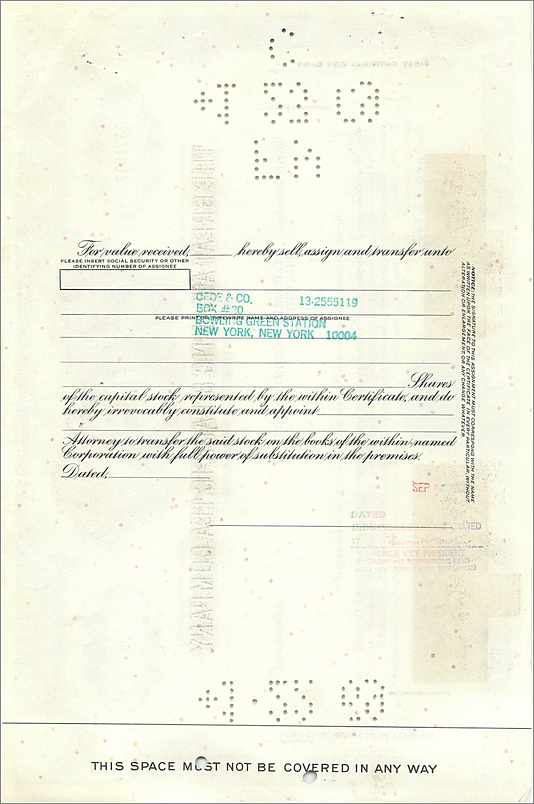 For value received, hereby sell, assign and transfer unto
PLEASE INSERT SOCIAL SECURITY OR OTHER
IDENTIFYING NUMBER OF ASSIGNEE
CEDE & CO. 13-2555119
BOX #20
PLEASE PRINT OR TYPEWRITE NAME AND ADDRESS OF ASSIGNEE
BOWLING GREEN STATION
NEW YORK, NEW YORK 10004
Shares
of the capital stock represented by the within Certificate, and do
hereby irrevocably constitute and appoint
Attorney to transfer the said stock on the books of the within named
Corporation with full power of substitution in the premises.
Dated,
NOTICE: THE SIGNATURE TO THIS ASSIGNMENT MUST CORRESPOND WITH THE NAME
AS WRITTEN UPON THE FACE OF THE CERTIFICATE IN EVERY PARTICULAR, WITHOUT
ALTERATION OR ENLARGEMENT OR ANY CHANGE WHATEVER.
SEP
DATED
THIS SPACE MUST NOT BE COVERED IN ANY WAY